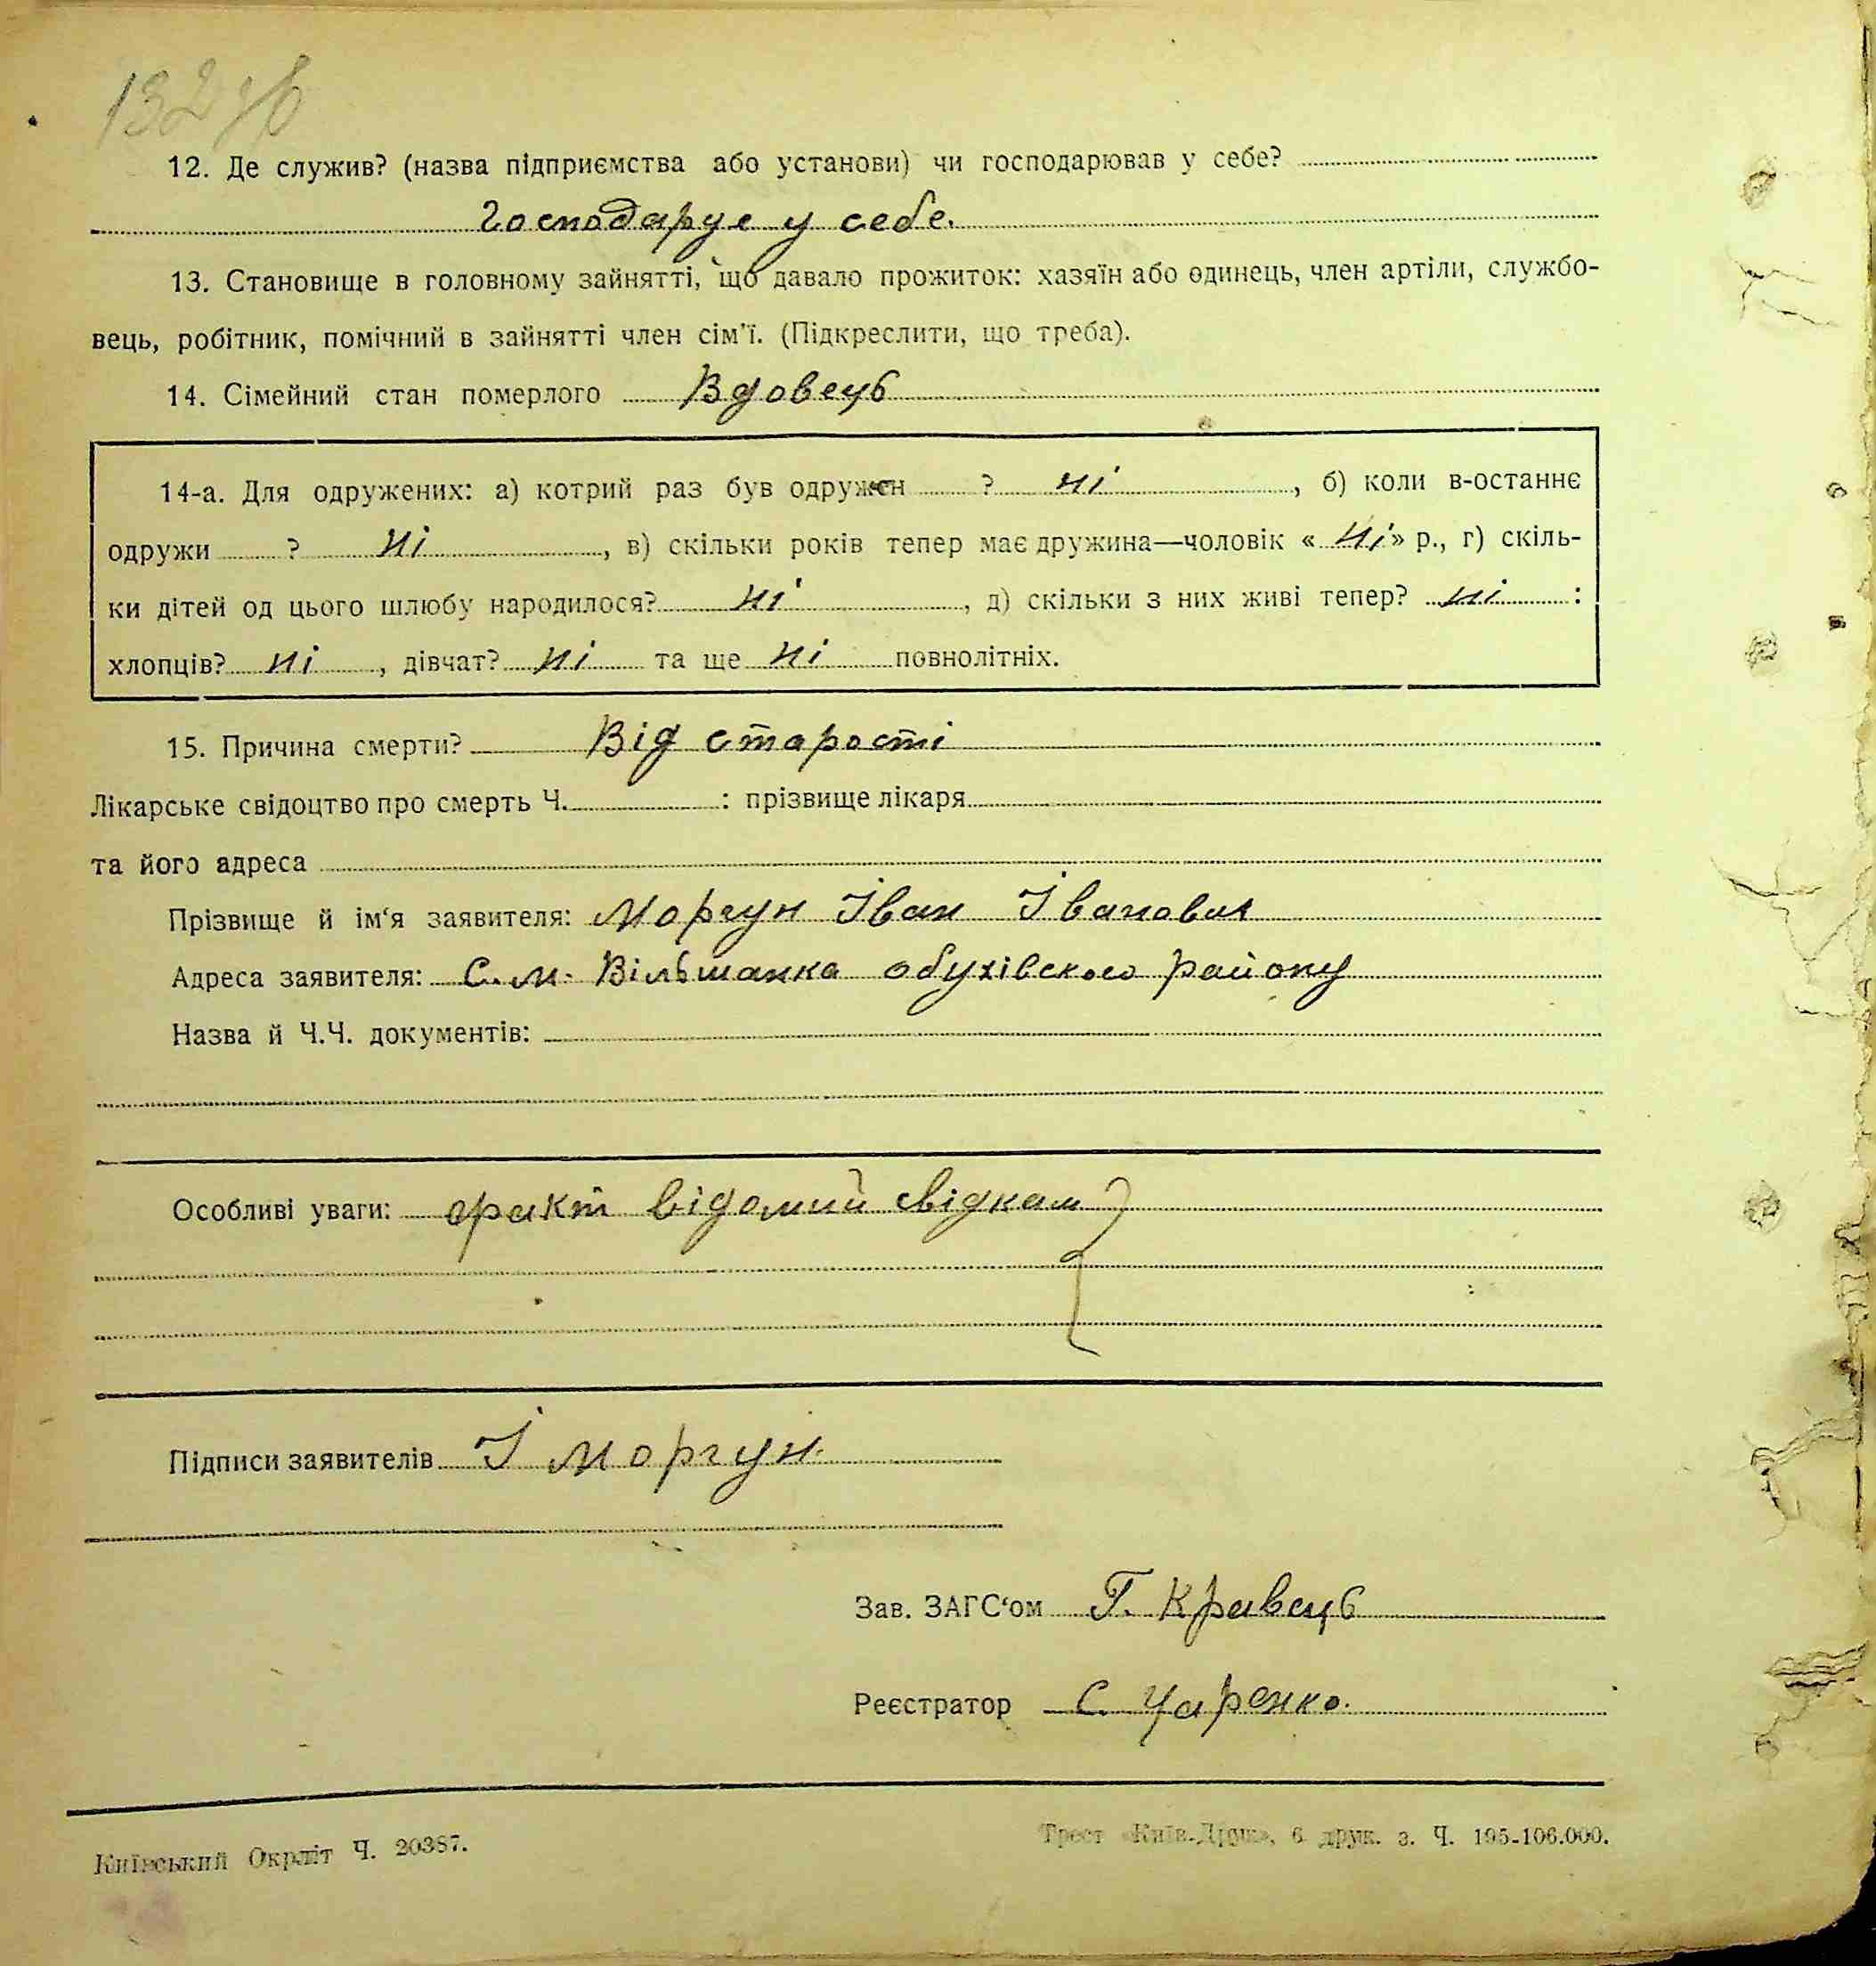 132 зв
12. Де служив? (назва підприємства або установи) чи господарював у себе?
Господарує у себе.
13. Становище в головному зайнятті, що давало прожиток: хазяїн або одинець, член артіли, службо-
вець, робітник, помічний в зайнятті член сім'ї. (Підкреслити, що треба).
14. Сімейний стан померлого Вдовець
14-а. Для одружених: а) котрий раз був одружен ? ні, б) коли в-останнє
одружи ? ні, в) скільки років тепер має дружина—чоловік «ні» р., г) скіль-
ки дітей од цього шлюбу народилося? ні, д) скільки з них живі тепер? ні :
хлопців? ні, дівчат? ні та ще ні повнолітніх.
15. Причина смерти? Від старости
Лікарське свідоцтво про смерть Ч. : прізвище лікаря
та його адреса
Прізвище й ім'я заявителя: Моргун Іван Іванович
Адреса заявителя: С. М. Вільшанка обухівского району
Назва й Ч.Ч. документів:
Особливі уваги: факт відомий свідкам
Підписи заявителів І Моргун.
Зав. ЗАГС'ом Г. Кравець
Реєстратор С. Царенко.
Київський Окрліт Ч. 20387.
Трест «Київ-Друк», 6 друк. з. Ч. 195-106.000.